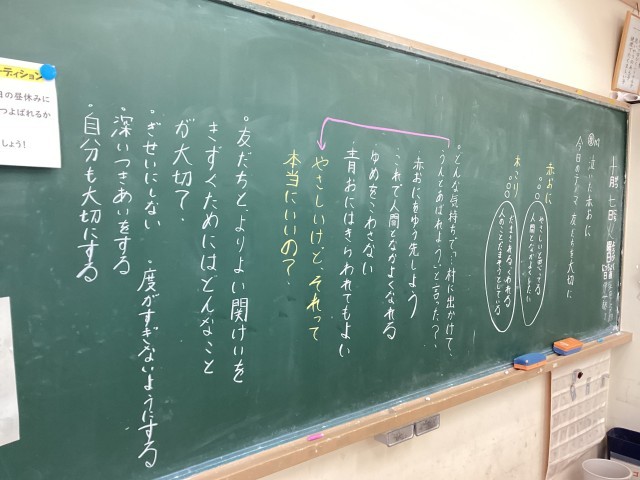 泣いた赤おに
今日のテーマ 友だちを大切に
赤おに
やさしいと思ってる
人間となかよくしたい
木こり
だまされる、くわれる
人のことだまそうとしている
・どんな気持ちで、「村に出かけて、
うんとあばれよう。」と言った?
赤おにをゆう先しよう
これで人間となかよくなれる
ゆめをこわさない
青おにはきらわれてもよい
やさしいけど、それって
本当にいいの?
・友だちと、よりよい関けいを
きずくためには、どんなこと
が大切?
・ぎせいにしない
・度がすぎないようにする
・深いつきあいをする
・自分も大切にする
ーディション
日の昼休みに
つよばれるか
しょう!